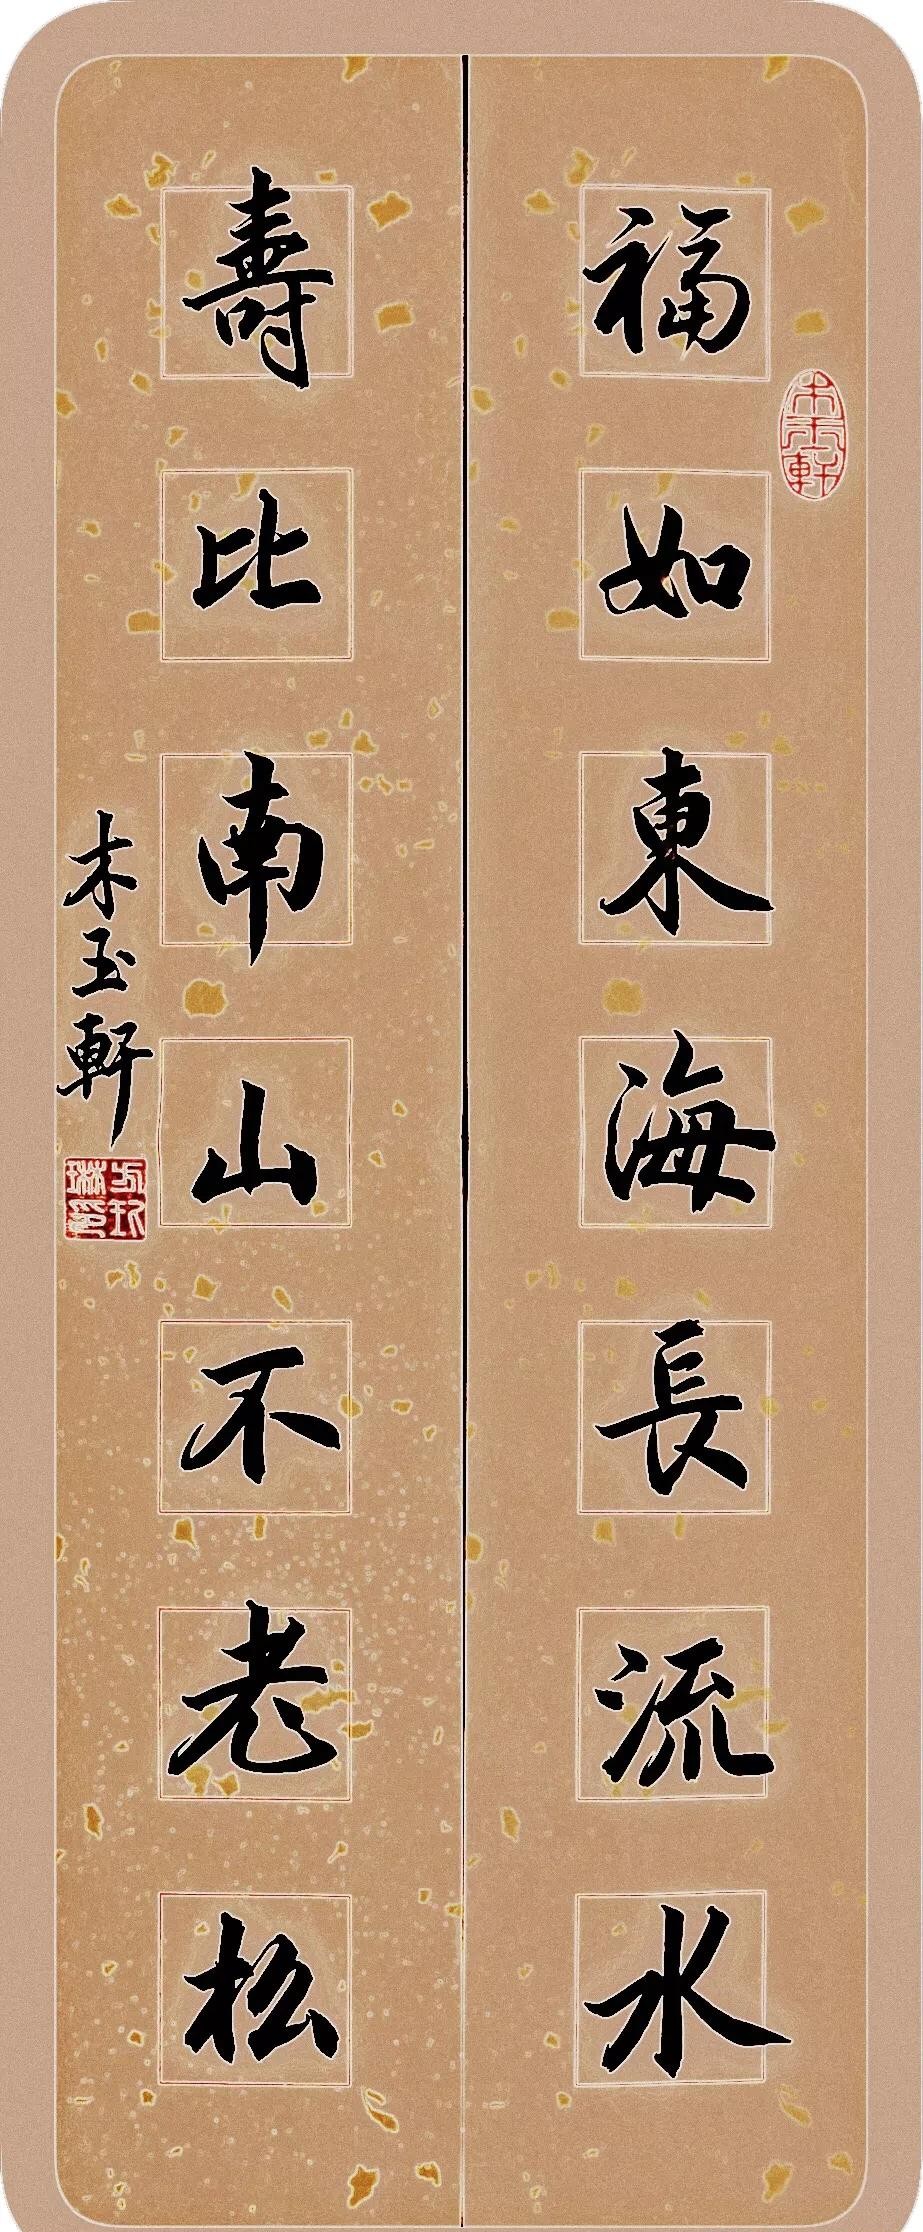 福如東海長流水
壽比南山不老松
木玉軒
木玉軒